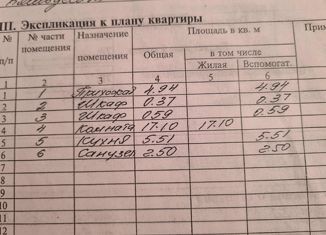 III. Экспликация к плану квартиры
№ п/п № части помещения Назначение помещения Площадь в кв. м При
Общая в том числе
Жилая Вспомогат.
1 2 3 4 5 6
1 1 Прихожая 4.94 4.94
2 2 Шкаф 0.37 0.37
3 3 Шкаф 0.59 0.59
4 4 Комната 17.10 17.10
5 5 Кухня 5.51 5.51
6 6 Санузел 2.50 2.50
7
8
9
10
11
12